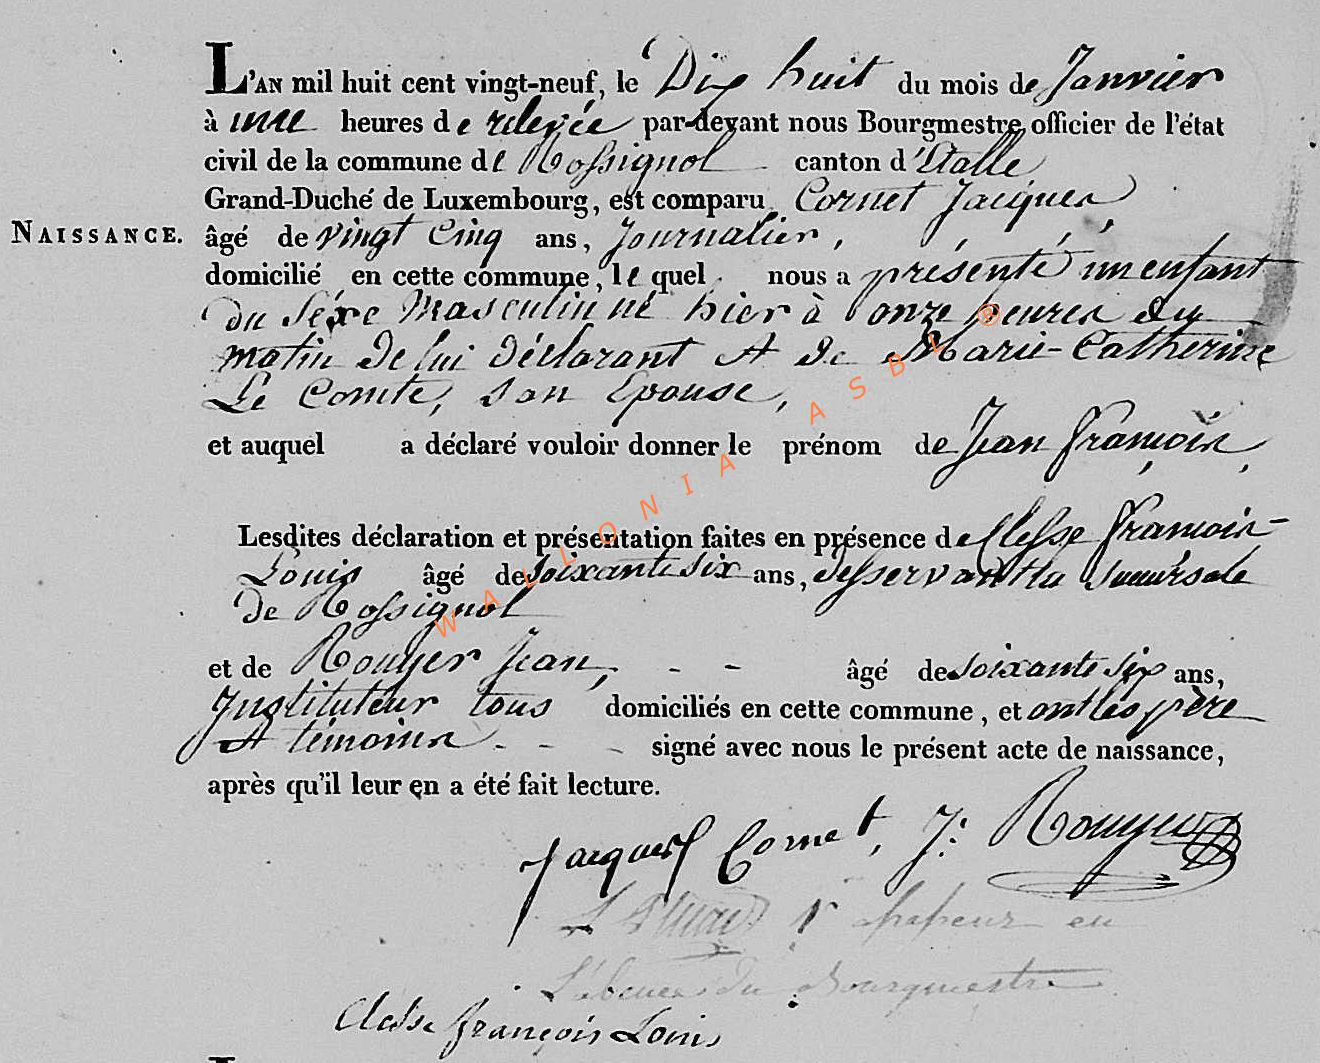 L'AN mil huit cent vingt-neuf, le Dix huit du mois de Janvier
à une heures de relevée par-devant nous Bourgmestre, officier de l'état
civil de la commune de Rossignol canton d'Etalle
Grand-Duché de Luxembourg, est comparu Cornet Jacques
NAISSANCE. âgé de vingt cinq ans, Journalier,
domicilié en cette commune, le quel nous a présenté un enfant
du Séxe Masculin né hier à onze heures du
matin de lui déclarant et de Marie-Catherine
Le Comte, son Epouse,
et auquel a déclaré vouloir donner le prénom de Jean François,
Lesdites déclaration et présentation faites en présence de Clesse François-
Louis âgé de soixante six ans, desservant la succursale
de Rossignol
et de Rouyer Jean, - - âgé de soixante six ans,
Instituteur tous domiciliés en cette commune, et ont les père
et témoins - - - signé avec nous le présent acte de naissance,
après qu'il leur en a été fait lecture.
Jacques Cornet, J: Rouyer
en
L'absence du Bourgmestre
Clesse françois Louis
WALLONIA ASBL ®